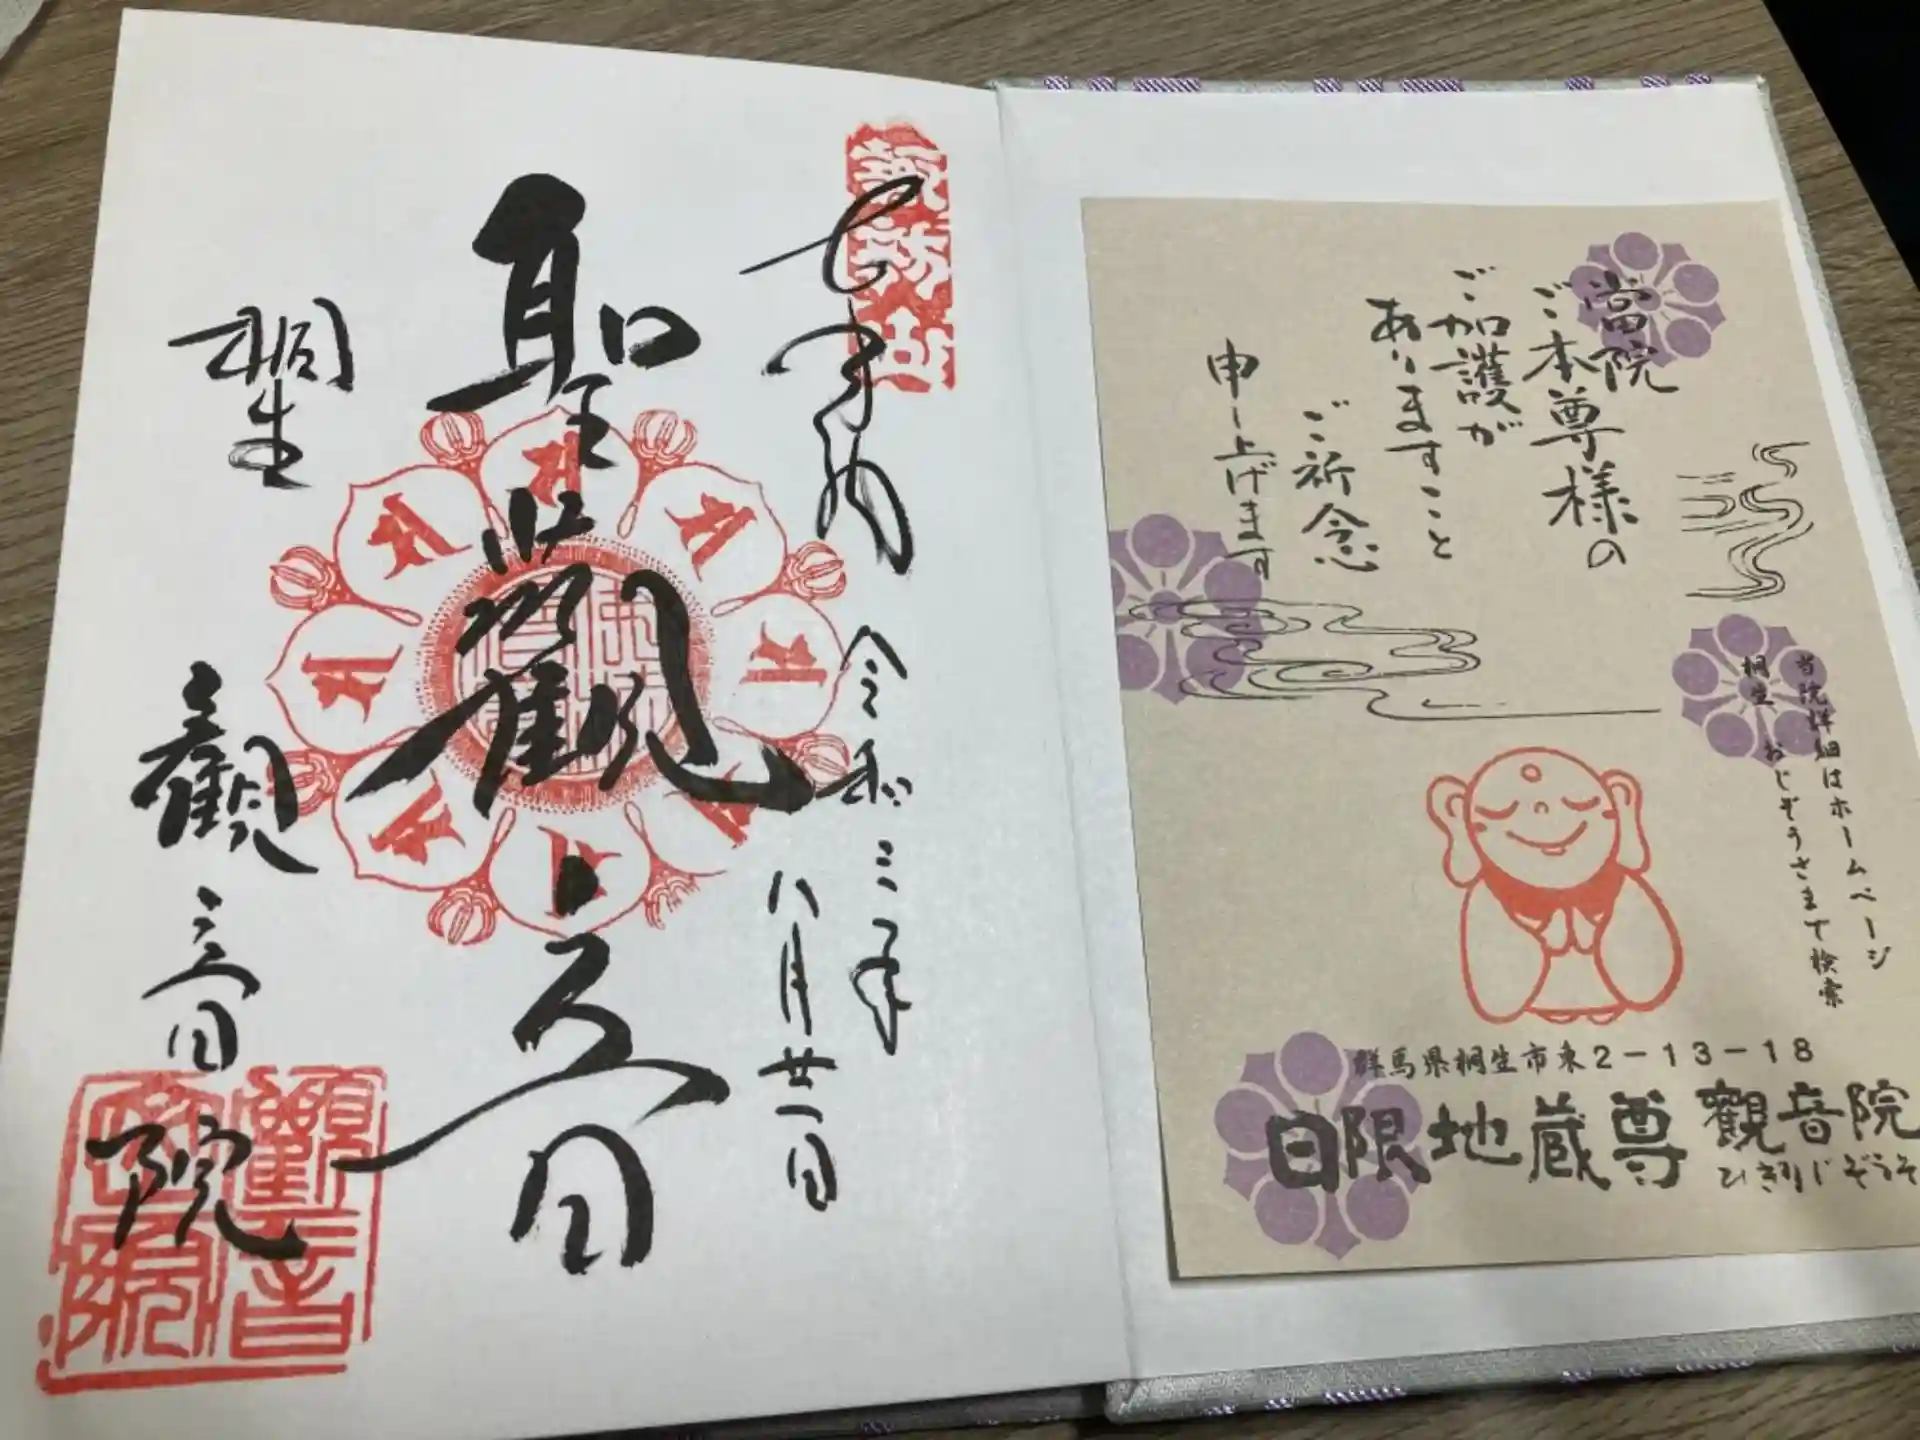 當院
ご本尊様の
ご加護が
ありますこと
ご祈念
申し上げます
当院詳細はホームページ
桐生 おじぞうさまで検索
群馬県桐生市東2-13-18
日限地蔵尊 觀音院
ひぎりじぞうそ
令和三年
八月廿一日
聖觀音
桐生
觀音院
觀音
院